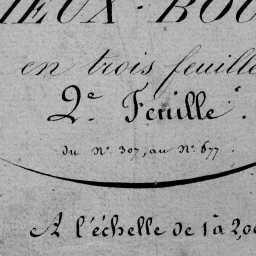 IEUX-BOU
en trois feuille
2.e Feuille.
du N.º 307, au N.º 677.
A l'échelle de 1 à 2,00